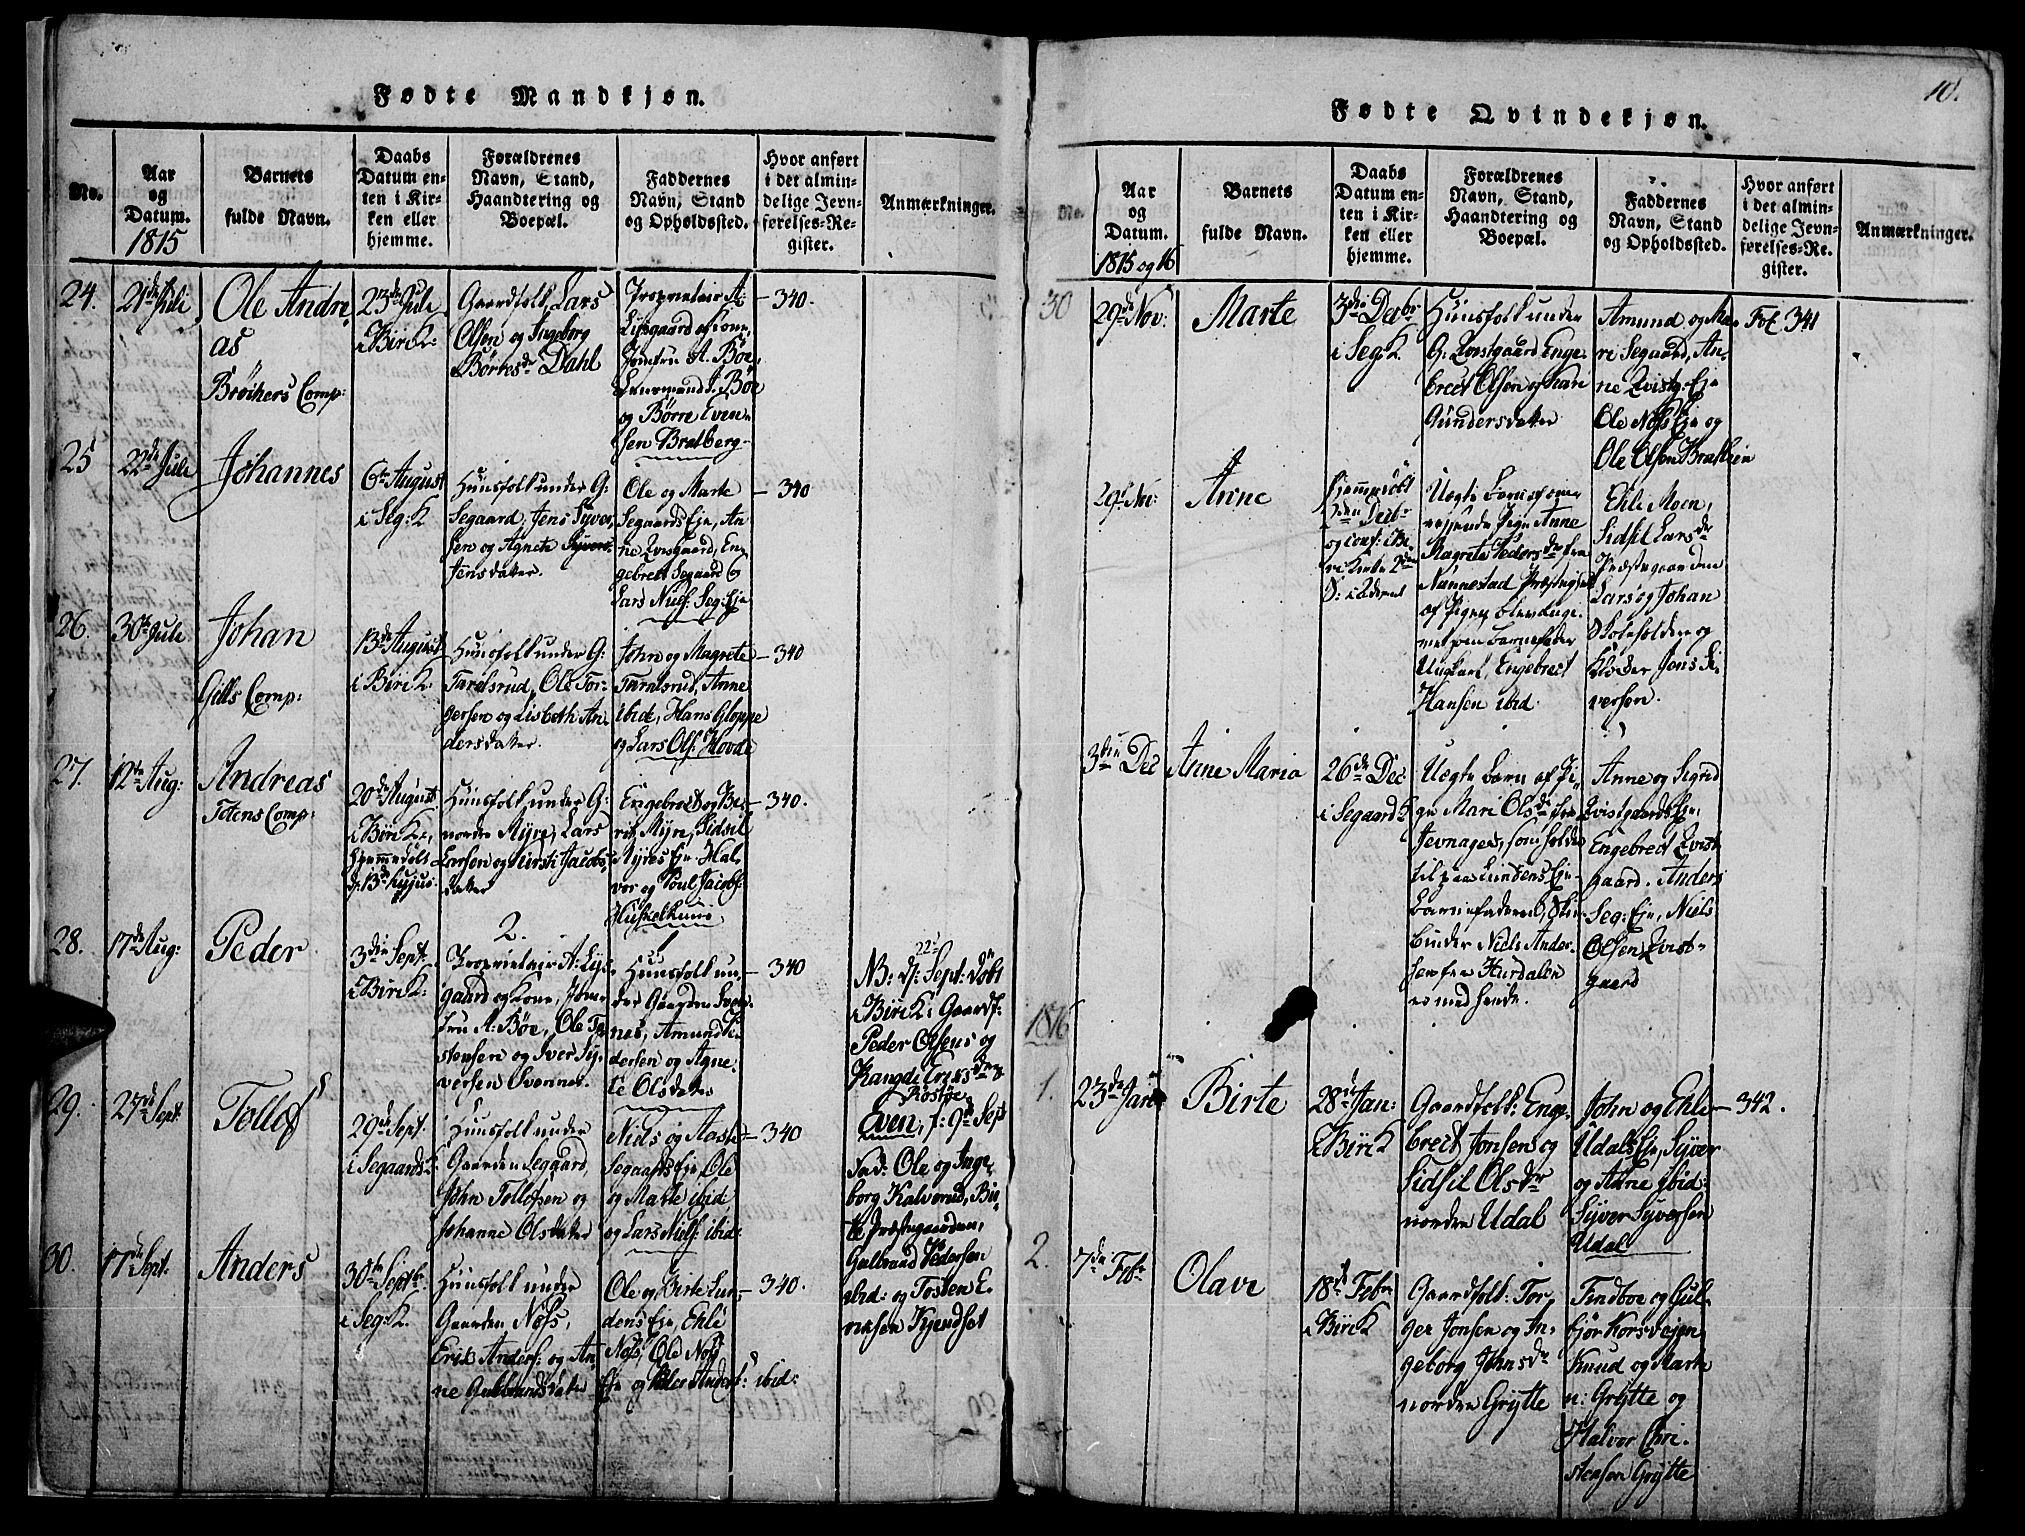 Fødte Mandkjøn.
No.
Aar
og
Datum.
1815
Barnets
fulde Navn.
Daabs
Datum en-
ten i Kir-
ken eller
hjemme.
Forældrenes
Navn, Stand,
Haandtering og
Boepæl.
Faddernes
Navn, Stand
og Opholdssted.
Hvor anført
i det almin-
delige Jevn-
førelses-Re-
gister.
Anmærkninger.
24.
21de Juli
Ole Andre
as
Brøihers Comp:
23de Jule
i Biri K:
Gaardfolk Lars
Olsen og Ingeborg
Børresdr Dahl
Proprietair A:
Lysgaard og Kone,
Jomfru A. Bøe,
Lensmand J. Bøe
og Børre Even-
sen Bratberg
- 340.
25
22de Jule
Johannes
6te August
i Seg: K
Huusfolk under G:
Segaard, Jens Syver
sen og Agnete
Jensdatter.
Ole og Marte
Segaards Eje, An
ne Qvistgaard, En
gebret Segaard og
Lars Niels: Seg: Eje
- 340
26.
30te Jule
Johan
Gills Comp:
13de August
i Biri K.
Huusfolk under G:
Taralsrud, Ole Tor-
gersen og Lisbeth An
dersdatter.
John og Magrete
Taralsrud, Anne
ibid, Hans Gloppe
og Lars Ols: Hovde
- 340
27.
12te Aug:
Andreas
Totens Comp:
20de August
i Biri K:,
hjemmedøbt
d: 13de hujus.
Huusfolk under G:
nordre Myre, Lars
Larsen og Kirsti Jacobs
datter
Engebret og Be-
rit Myre, Sidsil
Myres Eje. Hal-
vor og Poul Jacobs:
Huskelhuus
- 340.
28.
17de Aug:
Peder
3die Sept.
i Biri K:
2.
Proprietair A: Lys-
gaard og Kone, Jom-
fru A. Bøe, Ole To-
stensen og Sver Sy-
versen Svennes.
1
Huusfolk un-
der Gaarden Sven-
nes, Amund Pe-
dersen og Agne-
te Olsdatter
- 340
NB: d: 22de Sept: døbt
i Biri K: Gaardf:
Peder Olsens og
Rangdi Ericsdr
Rostøe
Even, f: 9de Sept
Fad: Ole og Inge-
borg Kalverud, Bir-
te Præstegaarden,
Gulbrand Pedersen
ibid: og Tosten E-
riksen Kjendset
29.
27de Sept.
Tollof
29de Sept.
i Segaards K.
Huusfolk under
Gaarden Segaard,
John Tollofsen og
Johanne Olsdatter
Niels og Aaste
Segaards Eje, Ole
og Marte ibid
og Lars Niels: ibid:
- 340
30.
17de Sept.
Anders
30te Septbr
i Seg: K.
Huusfolk under
Gaarden Næss,
Erik Anders: og An
ne Gulbrandsdatter
Ole og Birte Lun-
dens Eje, Ehli
Næss, Ole Næs
Eje og Peder Anders: ibid:
340.
10.
Fødte Qvindekjøn.
No.
Aar
og
Datum.
1815 og 16
Barnets
fulde Navn.
Daabs
Datum en-
ten i Kir-
ken eller
hjemme.
Forældrenes
Navn, Stand,
Haandtering og
Boepæl.
Faddernes
Navn, Stand
og Opholdssted.
Hvor anført
i det almin-
delige Jevn-
førelses-Re-
gister.
Anmærkninger.
30
29de Nov:
Marte
3die Decbr
i Seg: K.
Huusfolk under
G: Qvistgaard Enge-
bret Olsen og Kari
Gundersdatter
Amund og Ma-
ri Segaard, An-
ne Qvistg: Eje
Ole Næss Eje og
Ole Olsen Bratlien
Fol 341
29de Nov:
Anne
hjemmedøbt
Decbr
og conf: i Bi-
ri Kirke
Uægte Barn af om
rejsende Pige Anne
Magrete Pedersdr fra
Nannestad Præstegjeld
af Pigen
Barnefader
Ungkarl, Engebret
Hansen ibid
Ehli Moen,
Sidsil Larsdr
Præstegaarden
Lars og Johan
Skoleholder og
Jens Si-
versen.
3die Dec
Anne Maria
26de Dec
i Segaard K
Uægte Barn af Pi-
ge Mari Olsdr fra
Jevnager, som holder
til paa Lundens Eje
Barnefaderen, Ski-
binder Niels Ander-
sen fra Hurdalen
Anne og Sigrid
Qvistgaards Eje,
Engebret Qvist
gaard. Anders
Seg: Eje, Niels
Olsen Qvist-
gaard
1816
1.
23de Jan:
Birte
28de Jan:
i Biri K
Gaardfolk: Enge-
bret Jonsen og
Sidsil Olsdr
nordre Udal
John og Ehli
Udals Eje, Syver
og Anne ibid:
Syver Syversen
Udal
- 342.
2.
7de Febr
Olave
18de Febr
i Biri K
Gaardfolk: Tor-
ger Jonsen og In-
geborg Johnsdr
nordre Grytte
Findboe og Gul-
bjør Korsvejen
Knud og Marte
n: Grytte og
Halvor Chri-
stensen Grytte